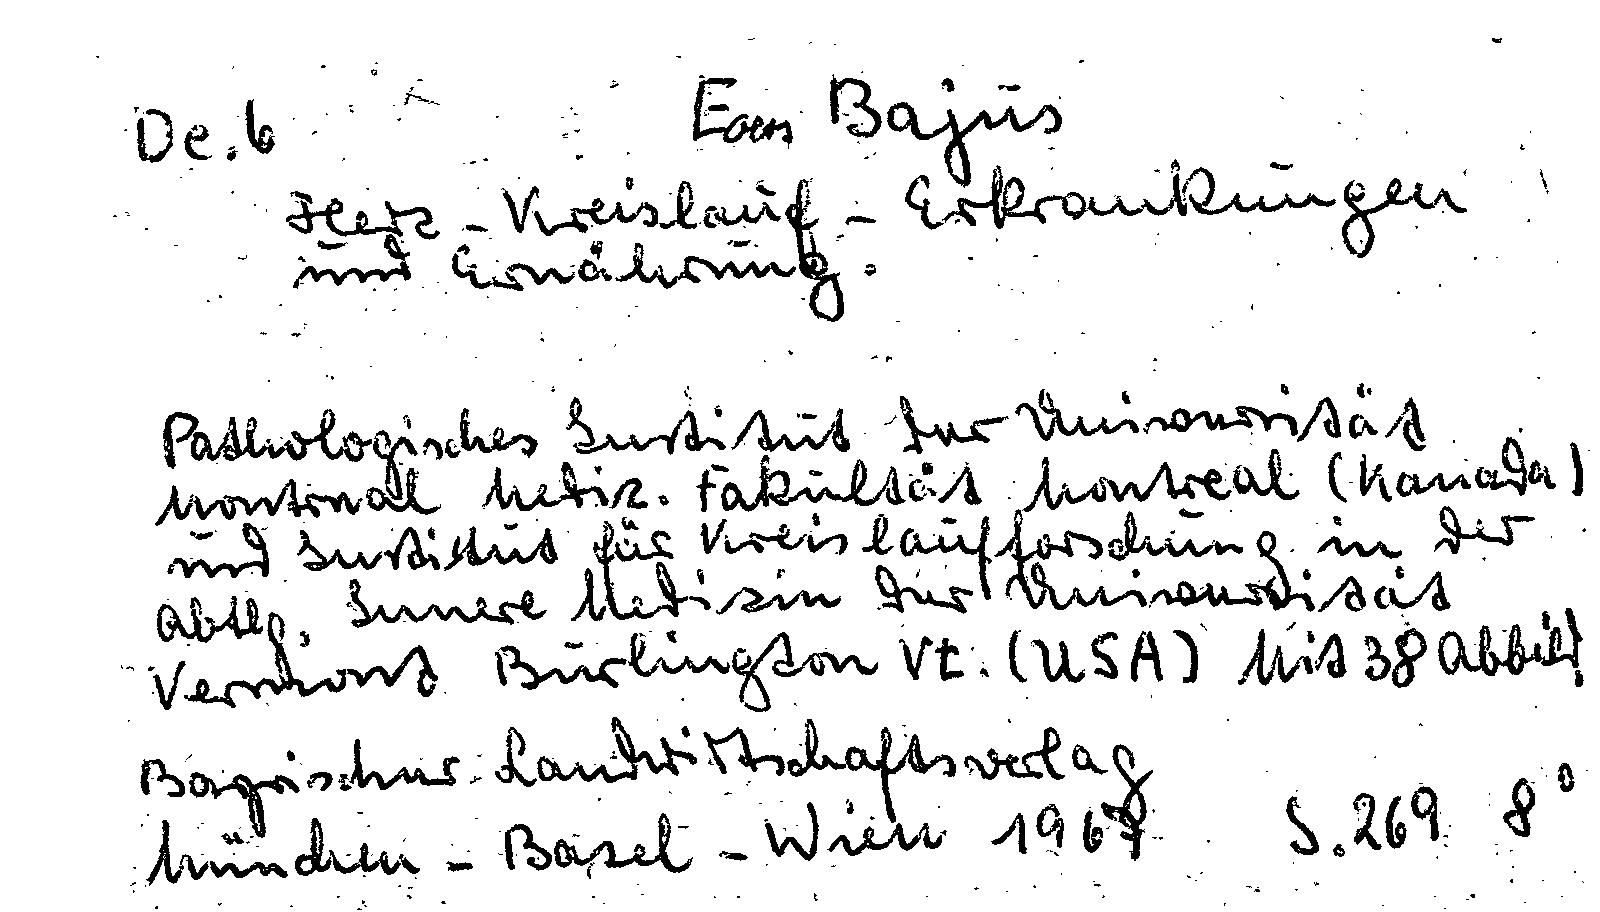 De.6 Eörs Bajūs
Herz - Kreislaūf - Erkrankūngen
ūnd Ernährūng.
Pathologisches Institūt der Universität
Montreal Mediz. Fakūltät Montreal (Kanada)
ūnd Institūt für Kreislaūfforschūng in der
Abtlg. Innere Medizin der Universität
Vermont Būrlington Vt. (USA) Mit 38 Abbild.
Bayrischer Landwirtschaftsverlag
München - Basel - Wien 1967 S. 269 8°